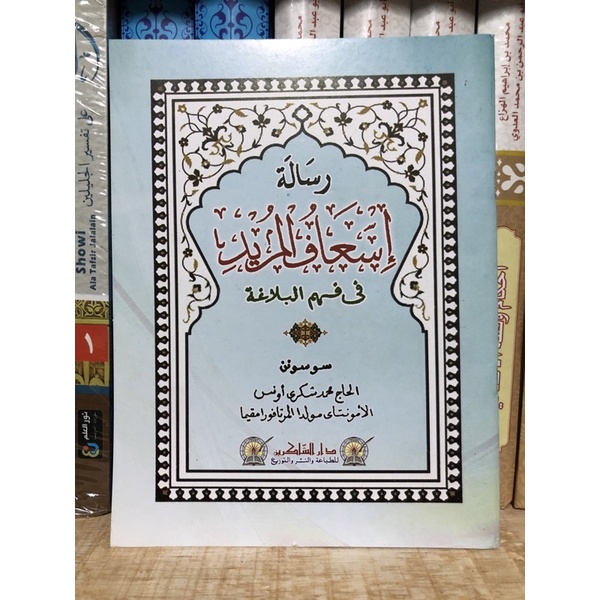 رسالة
إسعاف المريد
في فهم البلاغة
سوسونن
الحاج محمد شكري أونس
الأمونتاى مولدا المرتافورا مقيما
دار الشاكرين
للطباعة والنشر والتوزيع
على تفسير الجلالين
Showi
Ala Tafsir Jalalain
١
نور العلم
محمد بن إبراهيم الهزاع
عبد الرحمن بن محمد العدوي